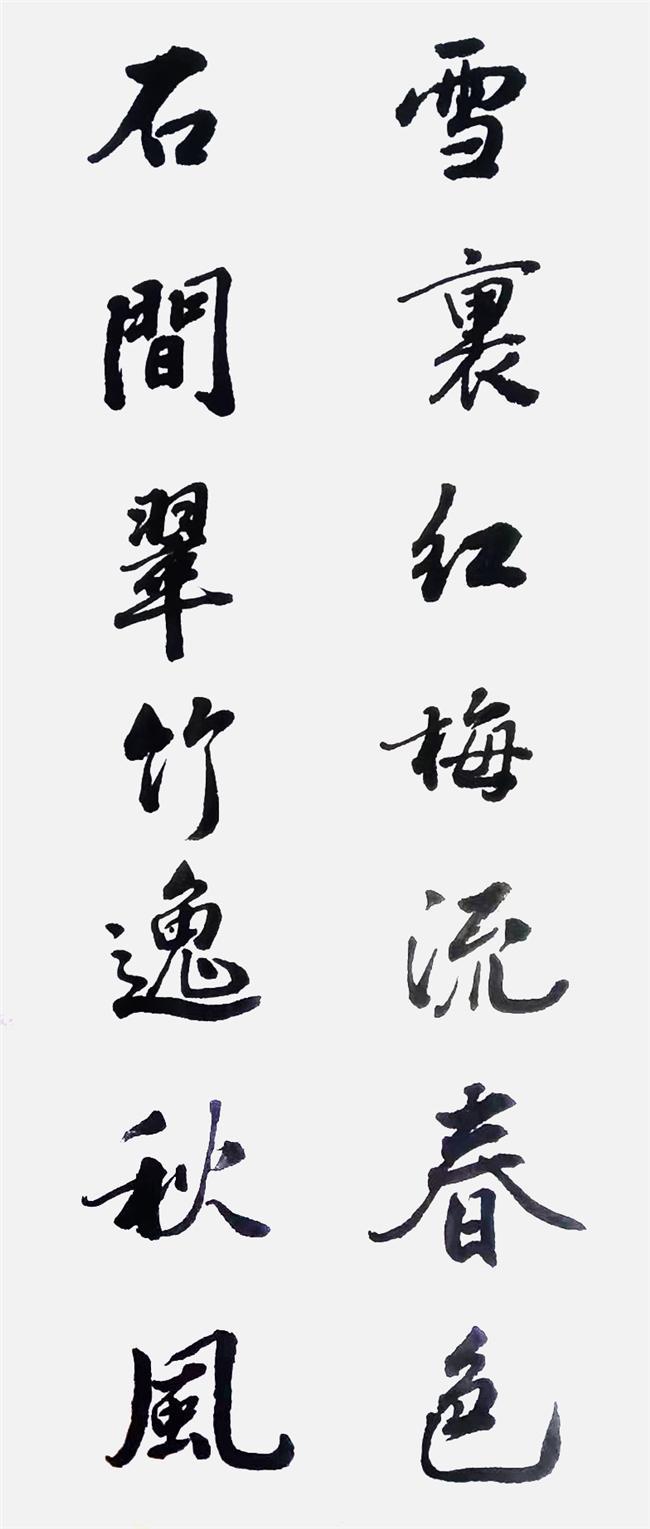 雪裏红梅流春色
石間翠竹逸秋風